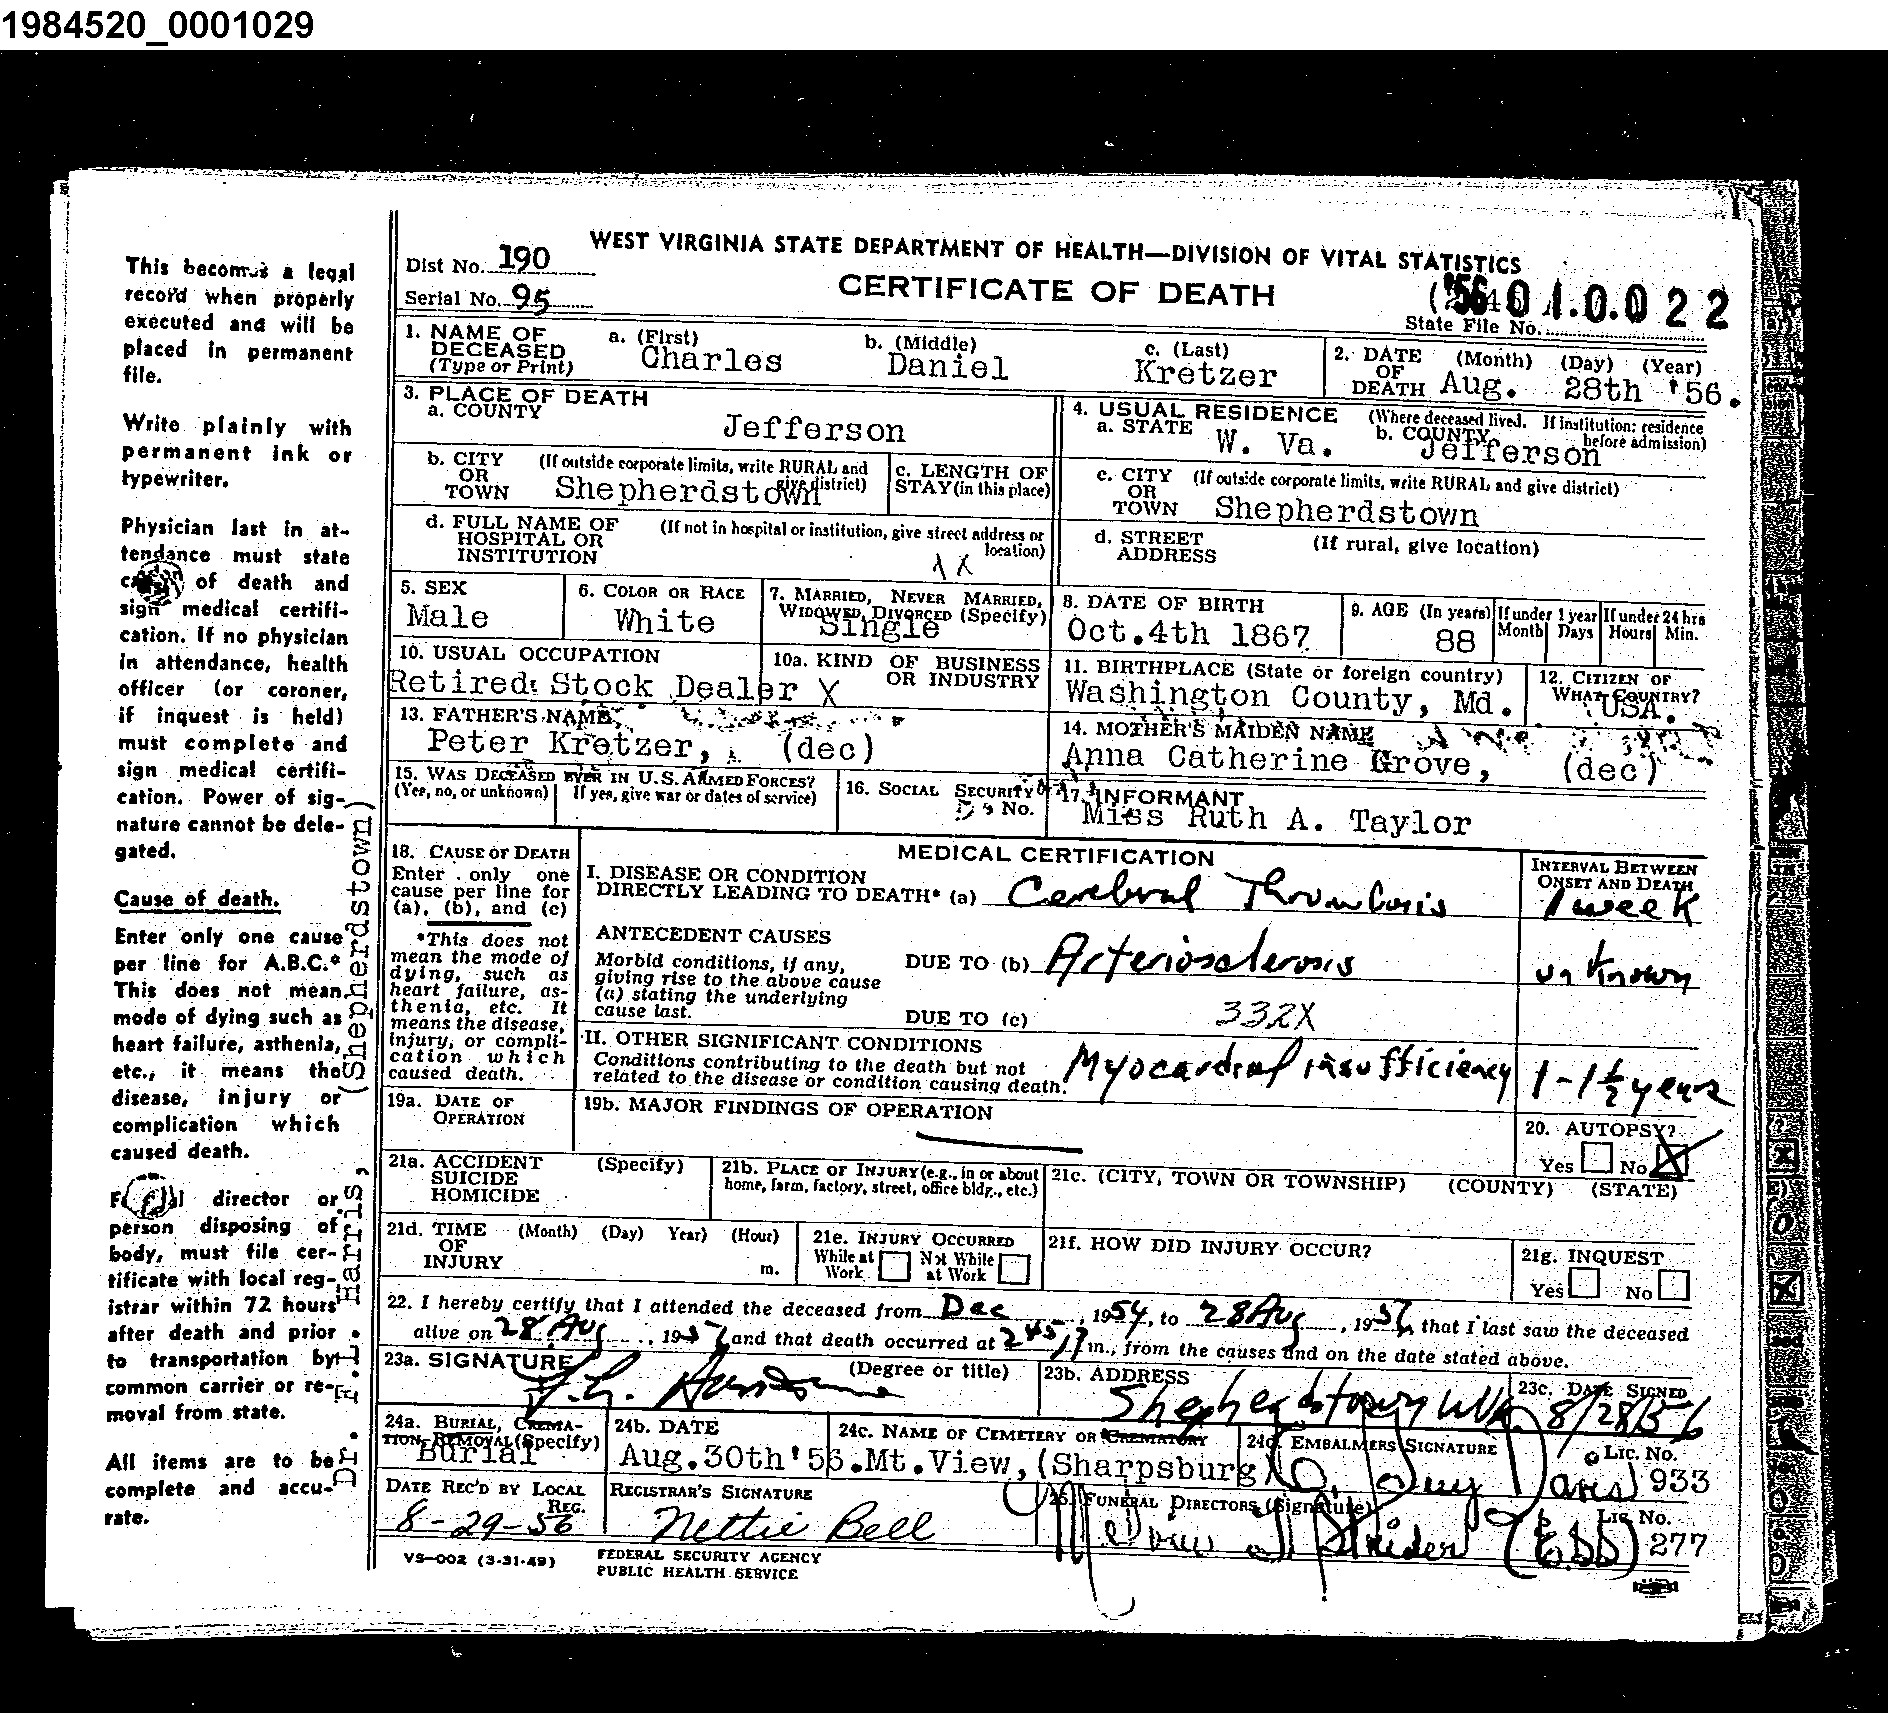 1984520_0001029
WEST VIRGINIA STATE DEPARTMENT OF HEALTH—DIVISION OF VITAL STATISTICS
CERTIFICATE OF DEATH
Dist No. 190
Serial No. 95
State File No.
1. NAME OF DECEASED (Type or Print) a. (First) Charles b. (Middle) Daniel c. (Last) Kretzer
2. DATE OF DEATH (Month) (Day) (Year) Aug. 28th '56.
3. PLACE OF DEATH
a. COUNTY Jefferson
b. CITY OR TOWN (If outside corporate limits, write RURAL and give district) Shepherdstown
c. LENGTH OF STAY (in this place)
d. FULL NAME OF HOSPITAL OR INSTITUTION (If not in hospital or institution, give street address or location)
4. USUAL RESIDENCE (Where deceased lived. If institution: residence before admission)
a. STATE W. Va. b. COUNTY Jefferson
c. CITY OR TOWN (If outside corporate limits, write RURAL and give district) Shepherdstown
d. STREET ADDRESS (If rural, give location)
5. SEX Male
6. COLOR OR RACE White
7. MARRIED, NEVER MARRIED, WIDOWED, DIVORCED (Specify) Single
8. DATE OF BIRTH Oct. 4th 1867
9. AGE (In years) 88 If under 1 year Month Days If under 24 hrs Hours Min.
10. USUAL OCCUPATION Retired: Stock Dealer X
10a. KIND OF BUSINESS OR INDUSTRY
11. BIRTHPLACE (State or foreign country) Washington County, Md.
12. CITIZEN OF WHAT COUNTRY? USA.
13. FATHER'S NAME Peter Kretzer, (dec)
14. MOTHER'S MAIDEN NAME Anna Catherine Grove, (dec)
15. WAS DECEASED EVER IN U.S. ARMED FORCES? (Yes, no, or unknown) If yes, give war or dates of service)
16. SOCIAL SECURITY No.
17. INFORMANT Miss Ruth A. Taylor
18. CAUSE OF DEATH
Enter only one cause per line for (a), (b), and (c)
*This does not mean the mode of dying, such as heart failure, asthenia, etc. It means the disease, injury, or complication which caused death.
MEDICAL CERTIFICATION
INTERVAL BETWEEN ONSET AND DEATH
I. DISEASE OR CONDITION DIRECTLY LEADING TO DEATH* (a) Cerebral Thrombosis 1 week
ANTECEDENT CAUSES
Morbid conditions, if any, giving rise to the above cause (a) stating the underlying cause last.
DUE TO (b) Arteriosclerosis unknown
DUE TO (c) 332X
II. OTHER SIGNIFICANT CONDITIONS
Conditions contributing to the death but not related to the disease or condition causing death. Myocardial insufficiency 1-1½ years
19a. DATE OF OPERATION
19b. MAJOR FINDINGS OF OPERATION
20. AUTOPSY? Yes No X
21a. ACCIDENT SUICIDE HOMICIDE (Specify)
21b. PLACE OF INJURY (e.g., in or about home, farm, factory, street, office bldg., etc.)
21c. (CITY, TOWN OR TOWNSHIP) (COUNTY) (STATE)
21d. TIME OF INJURY (Month) (Day) Year) (Hour) m.
21e. INJURY OCCURRED While at Work Not While at Work
21f. HOW DID INJURY OCCUR?
21g. INQUEST Yes No
22. I hereby certify that I attended the deceased from Dec, 1954, to 28 Aug, 1956, that I last saw the deceased
alive on 28 Aug, 1956, and that death occurred at 2 45 P m., from the causes and on the date stated above.
23a. SIGNATURE (Degree or title)
23b. ADDRESS Shepherdstown W Va.
23c. DATE SIGNED 8/28/56
24a. BURIAL, CREMATION, REMOVAL (Specify) Burial
24b. DATE Aug. 30th '56.
24c. NAME OF CEMETERY OR CREMATORY Mt. View, (Sharpsburg)
24d. EMBALMERS SIGNATURE Guy Davis Lic. No. 933
DATE REC'D BY LOCAL REG. 8-29-56
REGISTRAR'S SIGNATURE Nettie Bell
25. FUNERAL DIRECTORS (Signature) Strider Lic. No. 277
VS—002 (3-31-49)
FEDERAL SECURITY AGENCY
PUBLIC HEALTH SERVICE
This becomes a legal
record when properly
executed and will be
placed in permanent
file.
Write plainly with
permanent ink or
typewriter.
Physician last in at-
tendance must state
of death and
sign medical certifi-
cation. If no physician
in attendance, health
officer (or coroner,
if inquest is held)
must complete and
sign medical certifi-
cation. Power of sig-
nature cannot be dele-
gated.
Cause of death.
Enter only one cause
per line for A.B.C.*
This does not mean
mode of dying such as
heart failure, asthenia,
etc., it means the
disease, injury or
complication which
caused death.
director or
person disposing of
body, must file cer-
tificate with local reg-
istrar within 72 hours
after death and prior
to transportation by
common carrier or re-
moval from state.
All items are to be
complete and accu-
rate.
Harris, (Shepherdstown)